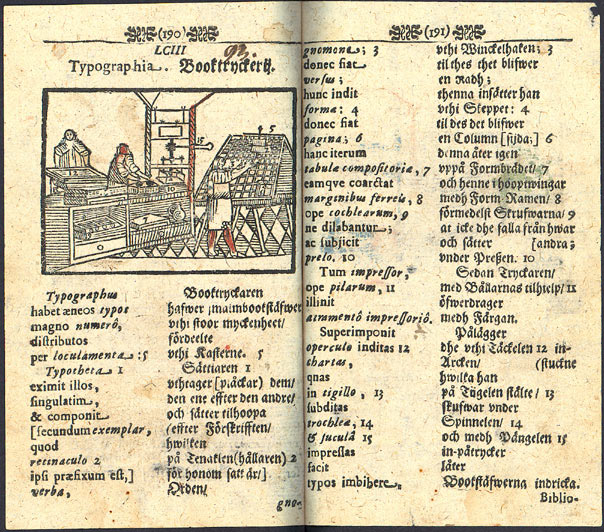 (190)
LCIII
Typographia. Booktryckerij.
15
5
10
7
Typographus Booktryckaren
habet æneos typos hafwer malmbookstäfwer
magno numerô, vthi stoor myckenheet/
distributos fördeelte
per loculamenta : 5 vthi Kasterne. 5
Typotheta 1 Sättiaren 1
eximit illos, vthtager (plåckar) dem/
singulatim, den ene effter den andre/
& componit och sätter tilhoopa
[secundum exemplar, (effter Förskrifften/
quod hwilken
retinaculo 2 på Tenaklen (hållaren) 2
ipsi præfixum est,] för honom satt är/]
verba, Orden/
gno-
(191)
gnomone; 3 vthi Winckelhaken; 3
donec fiat til thes thet blifwer
versus; en Radh;
hunc indit thenna insätter han
forma: 4 vthi Skeppet: 4
donec fiat til des det blifwer
pagina; 6 en Column [sijda;] 6
hanc iterum denna åter igen
tabulæ compositoriæ, 7 vppå Formbrädet/ 7
eamque coarctat och henne ihoopzwingar
marginibus ferreis, 8 medh Form Ramen/ 8
ope cochlearum, 9 förmedelst Skrufwarna/ 9
ne dilabantur; at icke dhe falla från hwar
ac subjicit och sätter [andra;
prelo. 10 vnder Preßen. 10
Tum impressor, Sedan Tryckaren/
ope pilarum, 11 med Bållarnas tilhielp/ 11
illinit öfwerdrager
atramentô impressoriô. medh Färgan.
Superimponit Pålägger
operculo inditas 12 dhe vthi Täckelen 12 in-
chartas, Arcken/ (stuckne
quas hwilka han
in tigillo, 13 på Tygelen stälte/ 13
subditas skufwar vnder
trochleæ, 14 Spinnelen/ 14
& suculâ 15 och medh Vängelen 15
impressas in-påtrycker
facit låter
typos imbibere. Bookstäfwerna indricka.
Biblio-